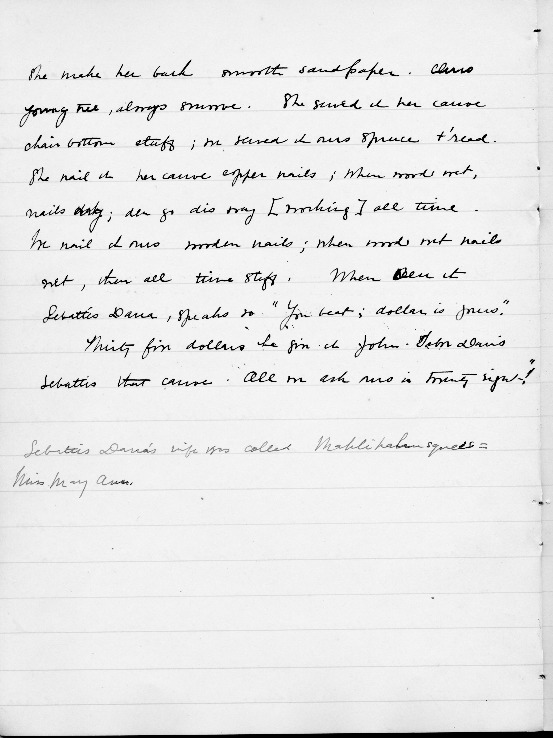 She make her bark smooth sandpaper. Ours
young tree, always smoove. She sewed it her canoe
chair bottom stuff; we sewed it ours spruce t'read.
She nail it her canoe copper nails; when wood wet,
nails dry; den go dis way [working] all time.
We nail it ours wooden nails; when wood wet nails
wet, then all time stiff. When see it
Sebattis Dana, speaks so "You beat; dollar is yours".
Thirty five dollars he give it John
Sebattis that canoe. All we ask ours is twenty eight!"
Sebattis Dana's wife was called
Miss Mary Ann.